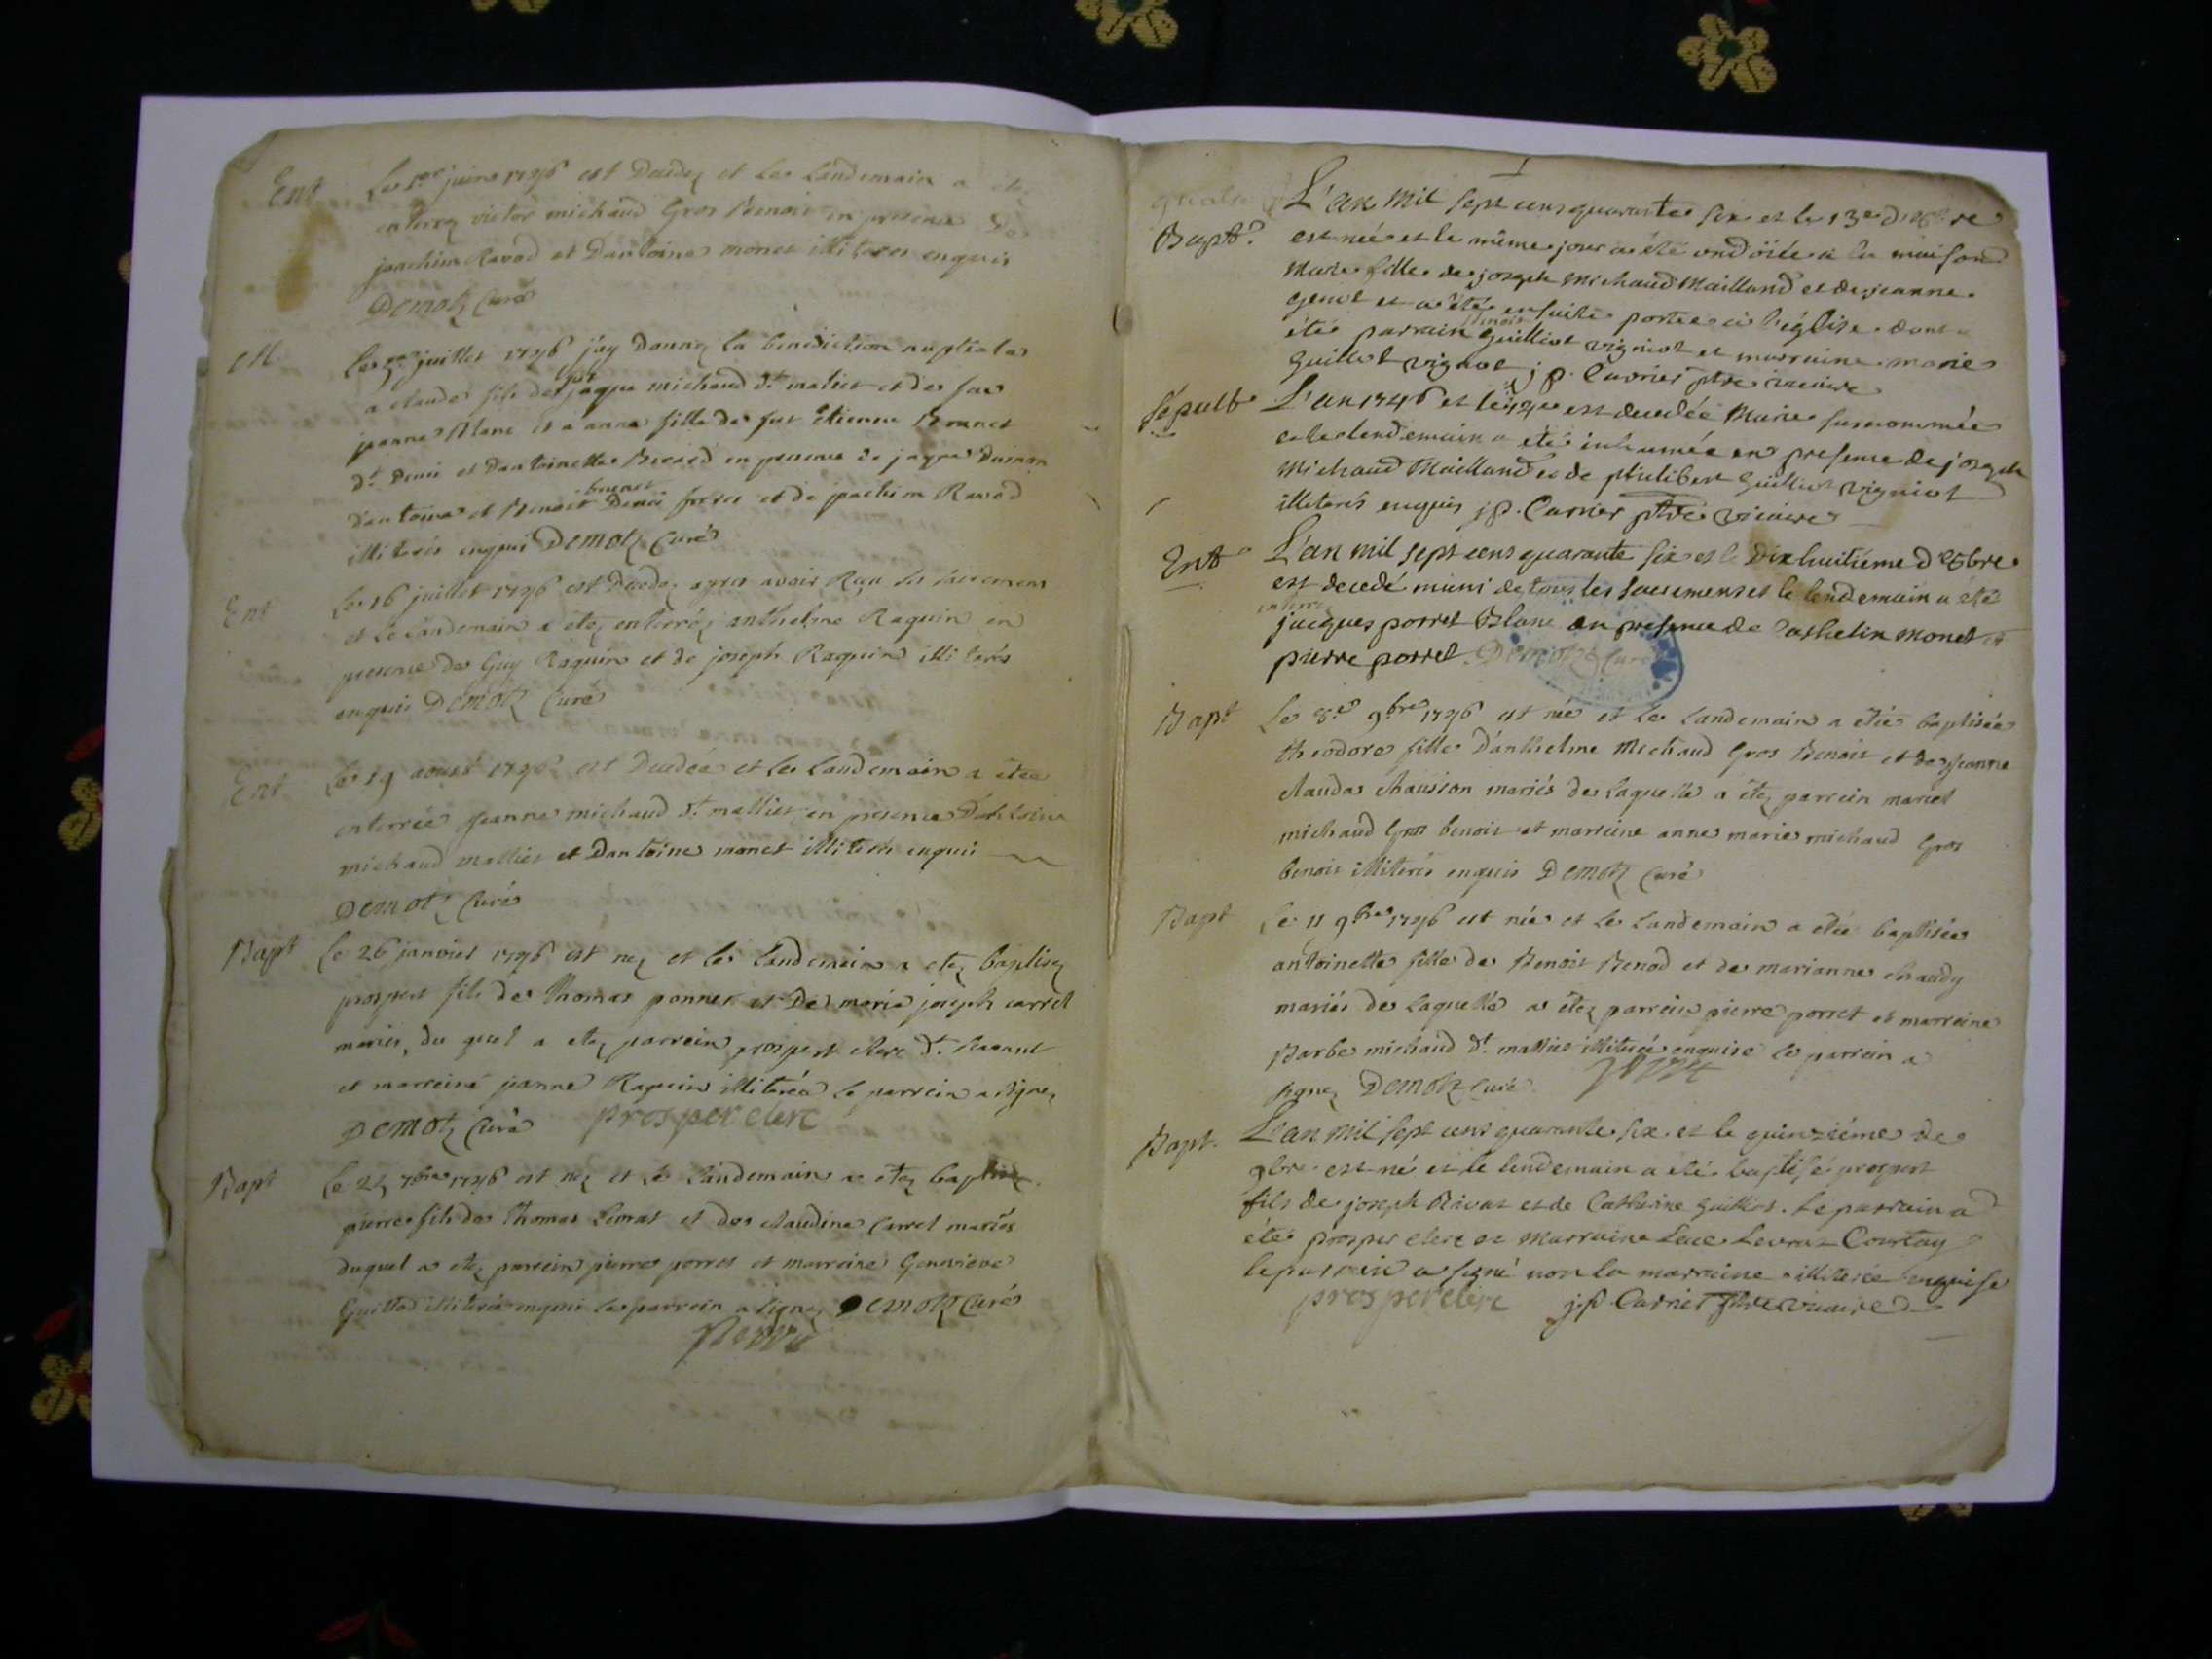 Ent
Le 1er juin 1746 est Decedez et le Landemain a etez
enterrez victor michaud Gros Benoit en presence de
joachim Ravod et Dantoine monet illiteres enquis
Demotz Curé
M
Le juillet 1746 jay Donnez la benediction nuptiale
a claude fils de jaque michaud dt matiet et de fue
jeanne Blanc et a anne fille de fut Etienne Brunet
dt Deni et Dantoinette Berard en presence de jaque
Dantoine et Benoit brunet Deni freres et de joachim Ravod
illiterés enquis Demotz Curé
Ent
Le 16 juillet 1746 est Decedez apres avoir Reçu les sacremens
et le Landemain a etez enterréz anthelme Raquin en
presence de Guy Raquin et de joseph Raquin illiterés
enquis Demotz Curé
Ent
Le 19 aoust 1746 est Decedée et le Landemain a étée
enterrée jeanne michaud dt mallier en presence Dantoine
michaud mallier et Dantoine monet illiterés enquis
Demotz Curé
Bapt
Le 26 janvier 1746 est nez et le Landemain a etez baptisez
prospert fils de Thomas ponnet et De marie joseph carrel
mariés, du quel a etez parrein prospert clerc dt
et marreine jeanne Raquin illiterée le parrein a signez
Demotz Curé prosper clerc
Bapt
Le 7bre 1746 est nez et le Landemain a étez baptisez
pierre fils de Thomas et de claudine Carrel mariés
duquel a etez parrein pierre porret et marreine Genevieve
Guillod illiterée enquise le parrein a signez Demotz Curé
Bapt.
L'an mil sept cens quarante six et le 13e d'8bre
est née et le même jour a été ondoïée à la maison
Marie fille de joseph Michaud Mailland et de jeanne
genot et a été ensuite portée à l'église dont a
été parrain Guilliot Vigniot et marraine marie
Guilliot vigniot j p. Carrier ptre vicaire
sépult
L'an 1746 et le est decedée Marie susnommée
et le lendemain a été inhumée en presence de joseph
Michaud Mailland et de philibert Guilliot vigniot
illiterés enquis j p. Carrier ptre vicaire
Ent
L'an mil sept cens quarante six et le Dix huitiéme d'8bre
est decedé muni de tous les sacremens et le lendemain a été
enterré
jacques porret Blanc en presence de monet et
pierre porret. Demotz Curé
Bapt
Le 8e 9bre 1746 est née et le Landemain a étée baptisée
theodore fille D'anthelme Michaud Gros Benoit et de jeanne
clauda chausson mariés de laquelle a étez parrein marcel
michaud Gros benoit et marreine anne marie michaud Gros
benoit illiterés enquis Demotz Curé
Bapt
Le 11 9bre 1746 est née et le Landemain a étée baptisée
antoinette fille de Benoit Benod et de marianne chaudy
mariés de laquelle a étez parrein pierre porret et marreine
Barbe michaud dt mallier illiterée enquise le parrein a
signez Demotz Curé
Bapt.
L'an mil sept cens quarante six et le quinziéme de
9bre est né et le lendemain a été baptisé prospert
fils de joseph Ravat et de Catherine Guilliot. le parrain a
été prosper clerc et Marraine Courtay
le parrain a signé non la marraine illiterée enquise
prosper clerc j p. Carrier ptre vicaire